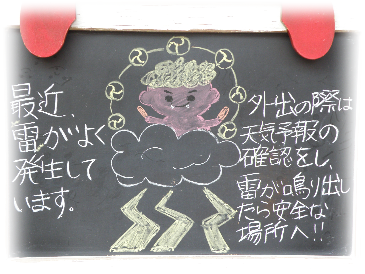 最近、
雷がよく
発生して
います。
外出の際は
天気予報の
確認をし、
雷が鳴り出し
たら安全な
場所へ!!